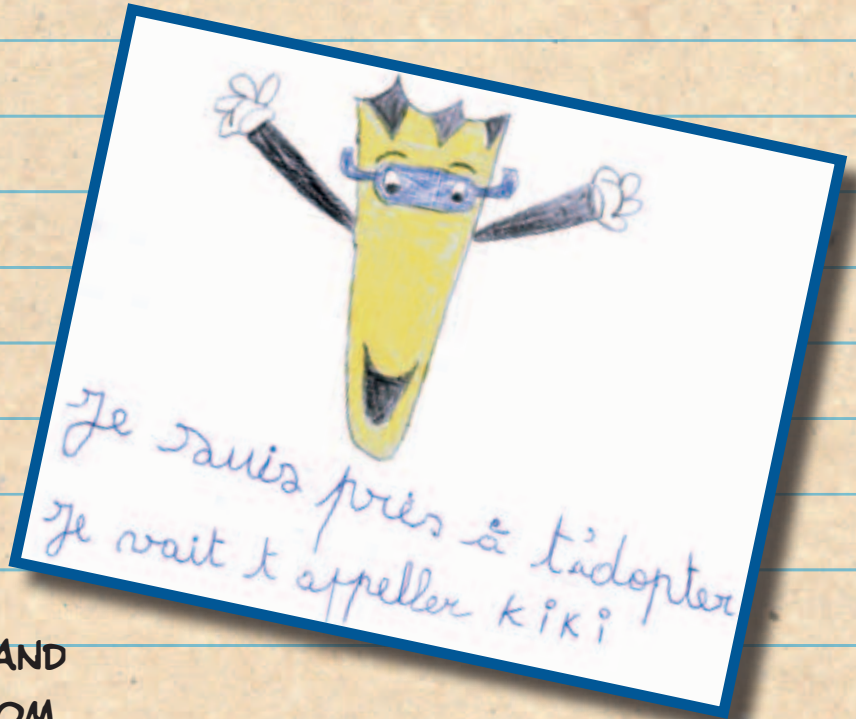 Je suis près à t'adopter
Je vait t appeller kiki
AND
OM